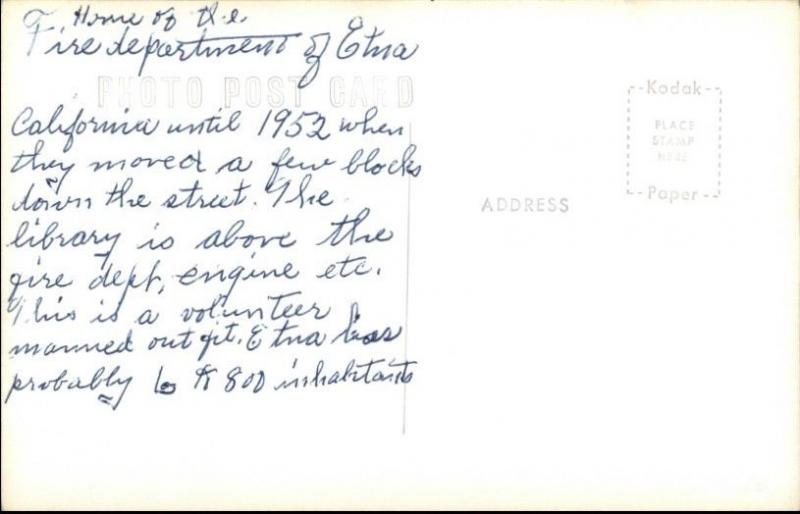 Home of the
Fire department of Etna
PHOTO POST CARD
California until 1952 when
they moved a few blocks
down the street. The
library is above the
fire dept, engine etc.
This is a volunteer
manned outfit. Etna has
probably 6 to 800 inhabitants
Kodak
PLACE
STAMP
HERE
Paper
ADDRESS